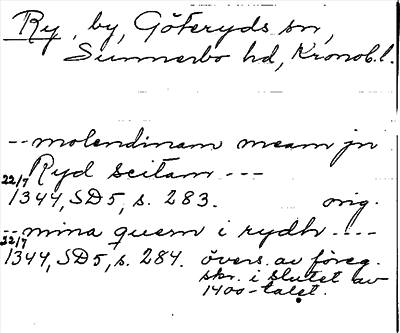 Ry, by, Göteryds sn,
Sunnerbo hd, Kronob.l.
--molendinam meam jn
Ryd scitam ---
22/7 1344, SD5, s. 283. orig.
--mina quern i rydh ----
22/7 1344, SD5, s. 284. övers. av föreg.
skr. i slutet av
1400-talet.